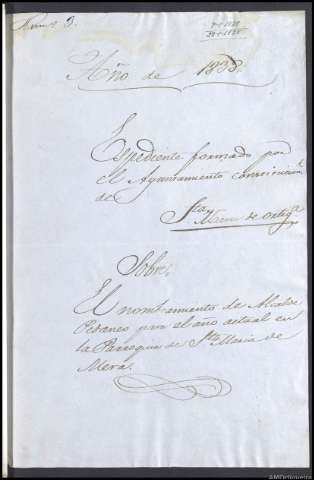 Num. 3.
Año de 1838.
Espediente formado por
el Ayuntamiento constitucional
de
Sta. Maria de Ortig.ra
Sobre,
El nombramiento de Alcalde
Pedaneo para el año actual en
la Parroquia de Sta. Maria de
Mera.
AMOrtigueira